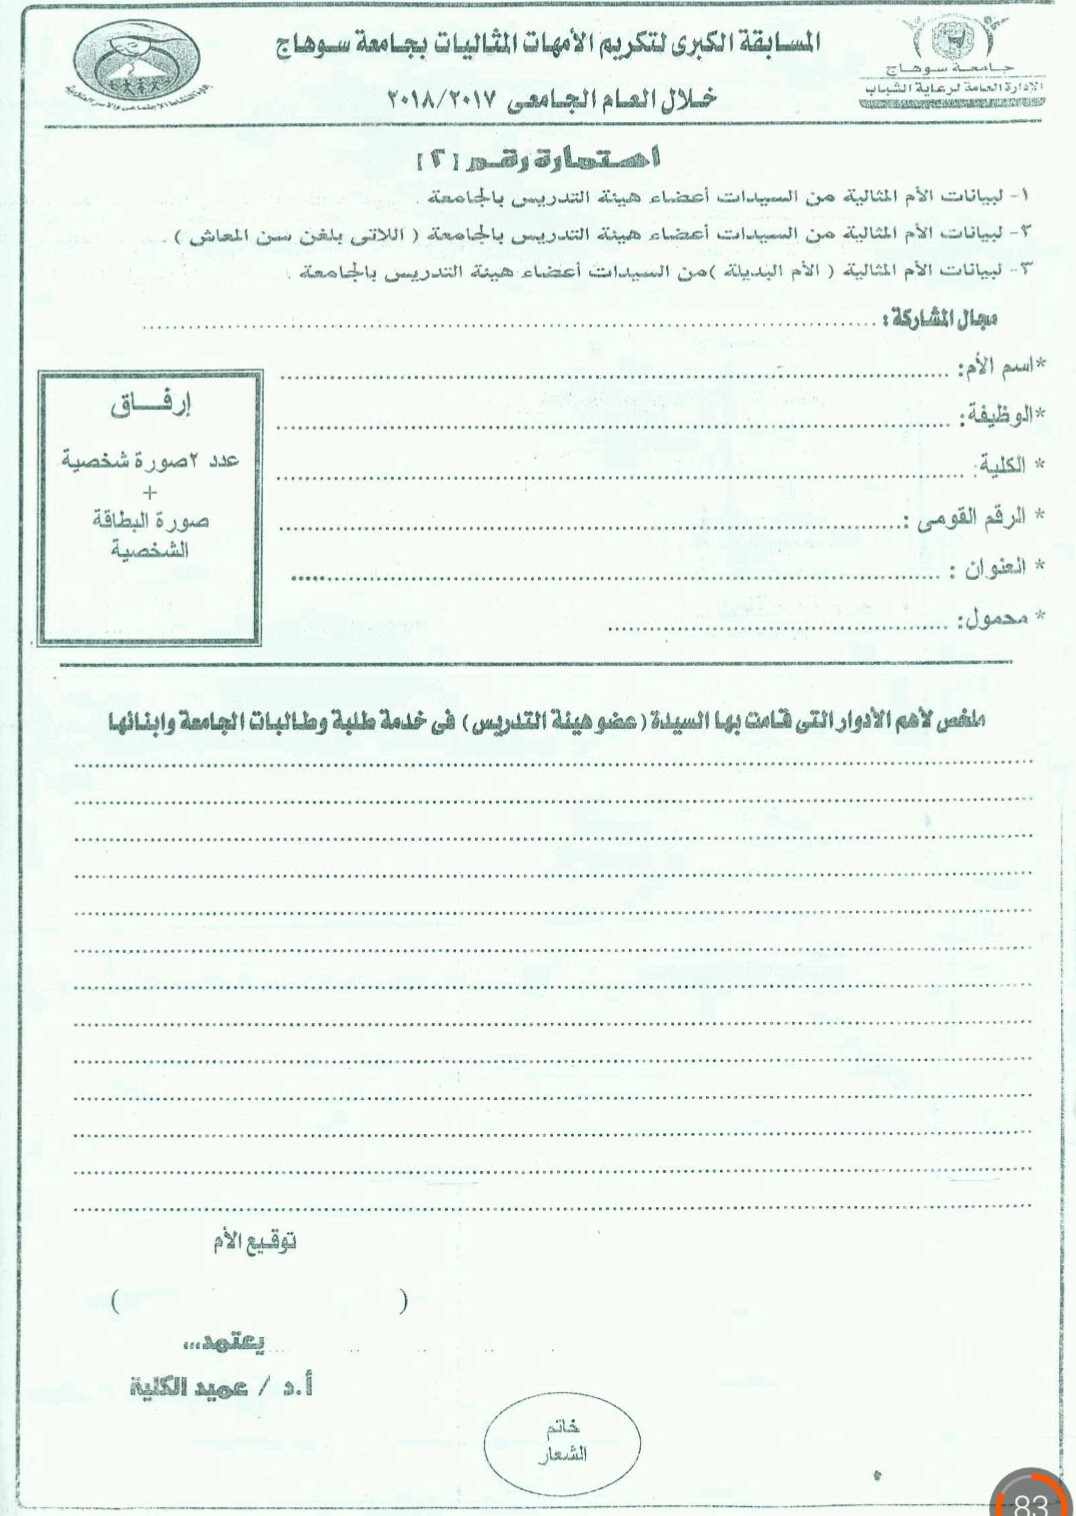 جامعة سوهاج
الإدارة العامة لرعاية الشباب
المسابقة الكبرى لتكريم الأمهات المثاليات بجامعة سوهاج
خلال العام الجامعى ٢٠١٨/٢٠١٧
استمارة رقم [٢]
١- لبيانات الأم المثالية من السيدات أعضاء هيئة التدريس بالجامعة .
٢- لبيانات الأم المثالية من السيدات أعضاء هيئة التدريس بالجامعة ( اللاتى بلغن سن المعاش ) .
٣- لبيانات الأم المثالية ( الأم البديلة )من السيدات أعضاء هيئة التدريس بالجامعة .
مجال المشاركة :
*اسم الأم:
*الوظيفة:
* الكلية:
* الرقم القومى :
* العنوان :
* محمول:
إرفــاق
عدد ٢صورة شخصية
+
صورة البطاقة
الشخصية
ملخص لأهم الأدوار التى قامت بها السيدة ( عضو هيئة التدريس ) فى خدمة طلبة وطالبات الجامعة وابنائها
توقيع الأم
( )
يعتمد...
أ.د / عميد الكلية
خاتم
الشعار
83